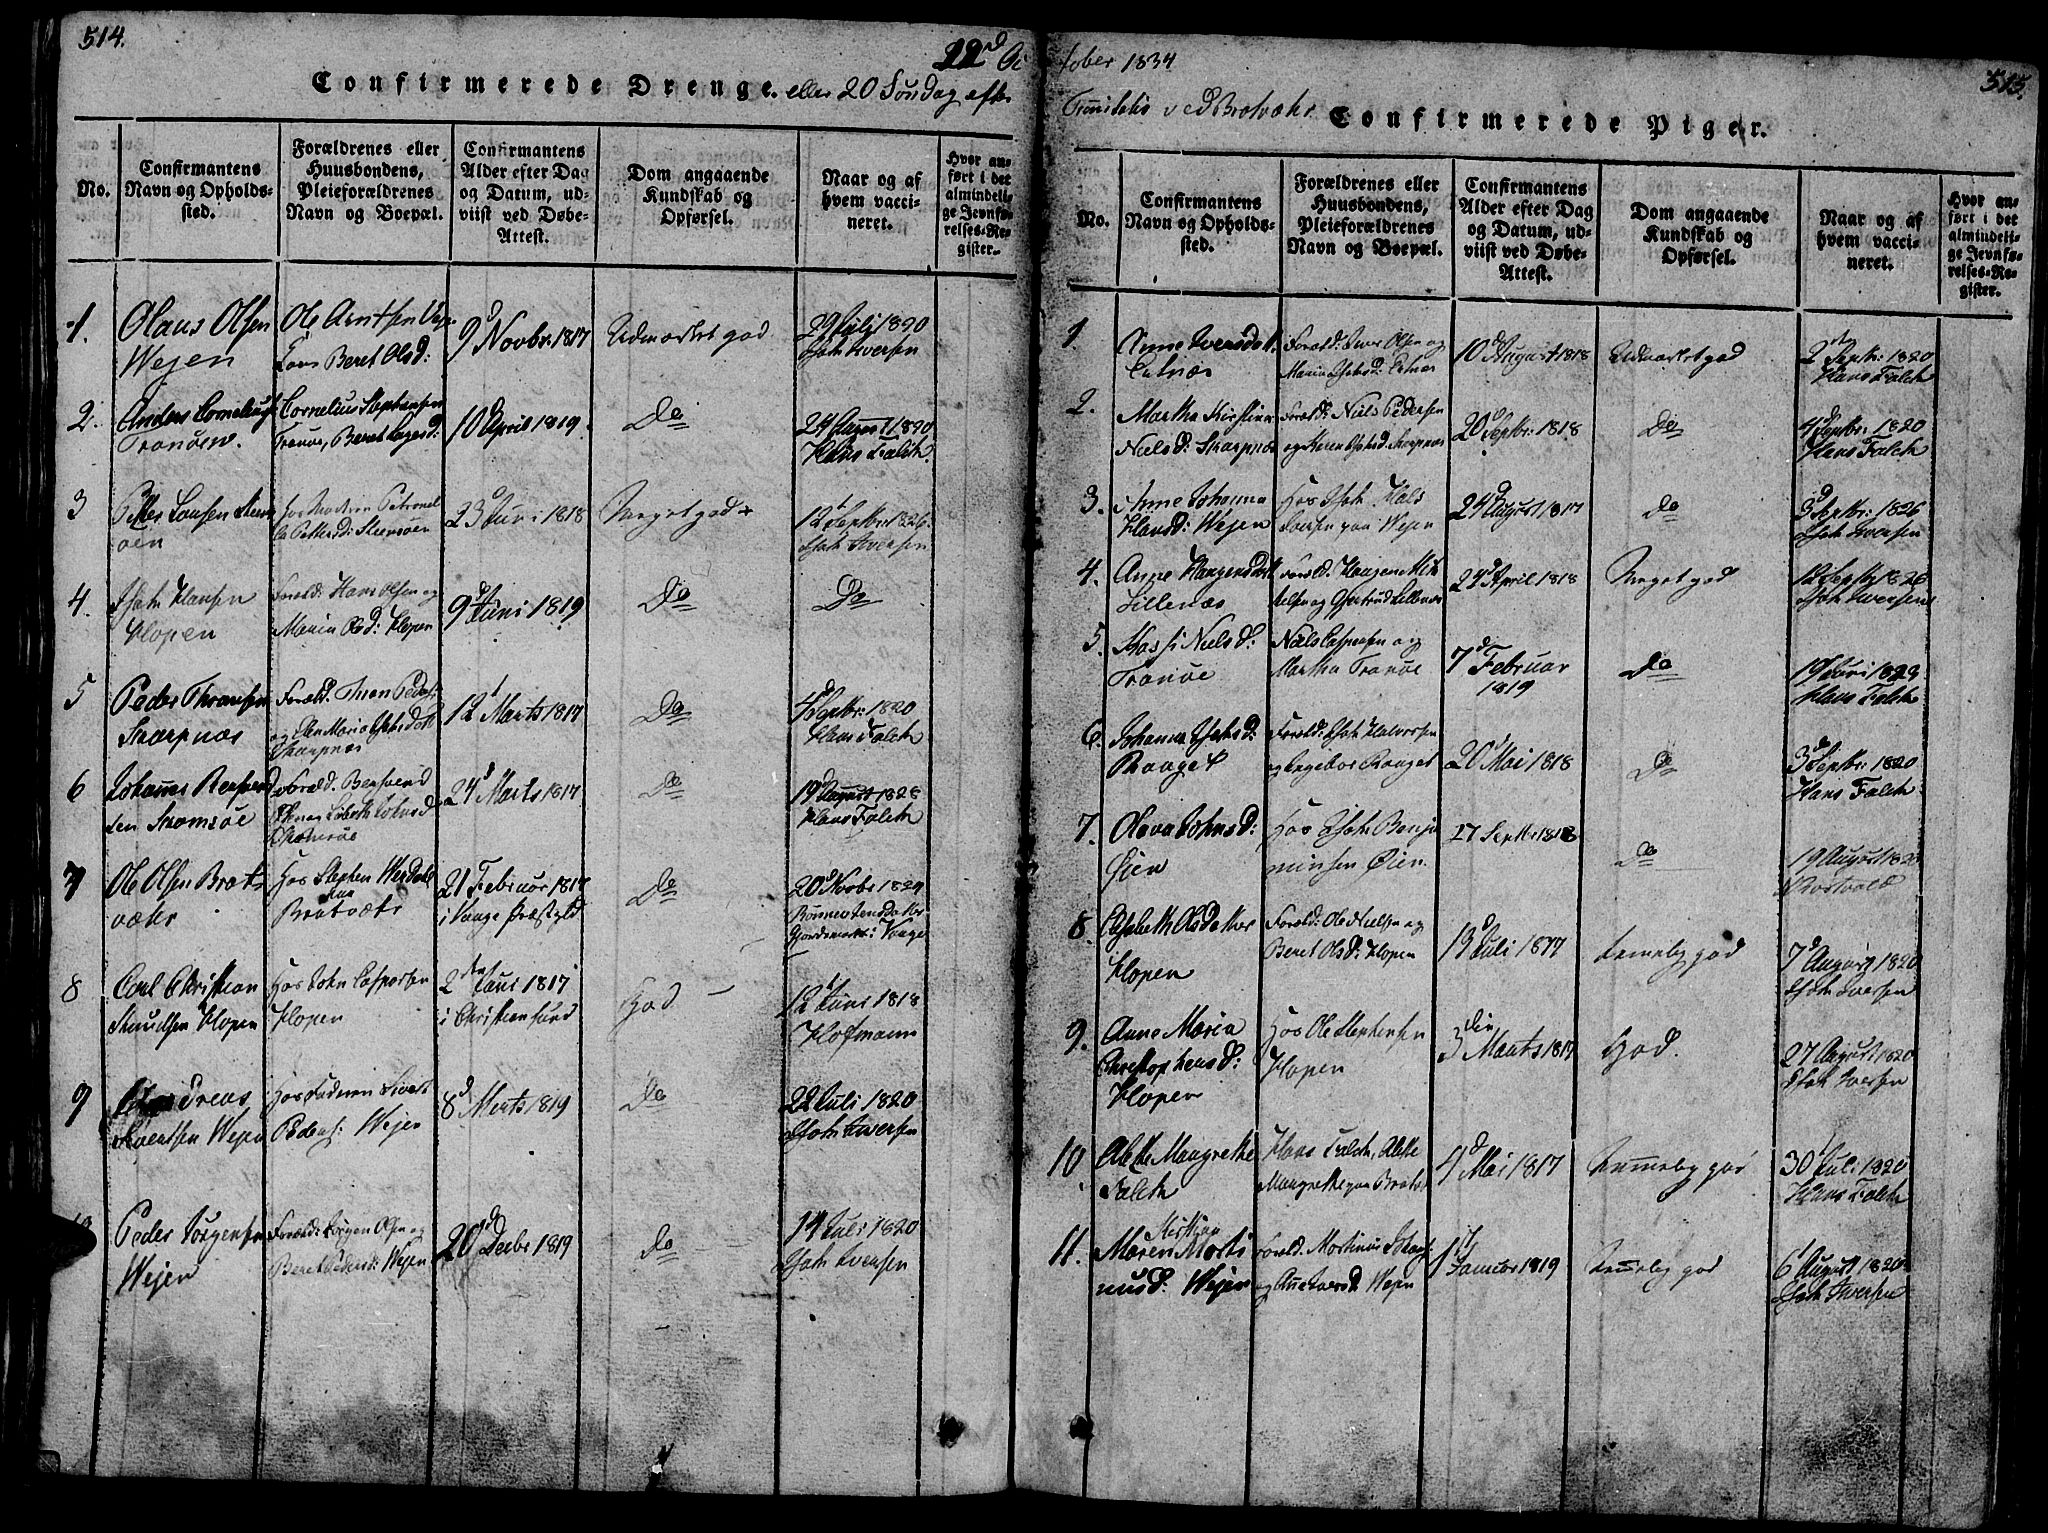 514.
22d Oc
Confirmerede Drenge. eller 20 Søndag efter
No.
Confirmantens
Navn og Opholds-
sted.
Forældrenes eller
Huusbondens,
Pleieforældrenes
Navn og Boepæl.
Confirmantens
Alder efter Dag
og Datum, ud-
viist ved Døbe-
Attest.
Dom angaaende
Kundskab og
Opførsel.
Naar og af
hvem vacci-
neret.
Hvor an-
ført i det
almindeli-
ge Jevnfø-
relses-Re-
gister.
1.
Olaus Olsen
Wejen
Ole Arntsen
Beret Olsd:
9d Novbr. 1817
Udmærket god
29 Juli 1820
Joh Iversen
2.
Anders Cornelius
Tranöen.
Cornelius Stephansen
Tranöe, Beret
10d April 1819.
Do
24 August 1820
Hans Falch.
3
Petter Larsen
öen
Petronel
la Pettersd: Steensöen
23d Juni 1818
Meget god
12t Septbr: 1826
Joh Iversen
4.
Joh Hansen
Hopen
Foræld: Hans Olsen og
Maria Olsd: Hopen
9d Juni 1819
Do
Do
5
Peder Thronsen
Skarpnæs
Foræld. Tron Peders:
og Maria
Skarpnæs
12t Marts 1817
Do
4d Septbr: 1820
Hans Falch
6
Johannes
Skomsöe
Foræld.
24d Marts 1817
Do
19d August 1828
Hans Falch
7
Ole Olsen Brat-
vær
Hos Stephen
Bratvær
21 Februar 1817
i Præstgjeld
Do
20d Novbr 1824
8
Carl Christian
Knudsen Hopen
Hos John Caspersen
Hopen
2den Juni 1817
i Christiansund
God
12t Juni 1818
Hofmann
9
Andreas
Sivertsen Wejen
Hos Sivert
Peders: Wejen
8d Marts 1819
Do
22 Juli 1820
Joh Iversen
10
Peder Jörgensen
Wejen
Foræld: Jörgen Olsen og
Beret Pedersd: Wejen
20d Decbr 1819
do
14 Juli 1820
Joh Iversen
515.
tober 1834
Trinitatis ved Bratvær
Confirmerede Piger.
No.
Confirmantens
Navn og Opholds-
sted.
Forældrenes eller
Huusbondens,
Pleieforældrenes
Navn og Boepæl.
Confirmantens
Alder efter Dag
og Datum, ud-
viist ved Døbe-
Attest.
Dom angaaende
Kundskab og
Opførsel.
Naar og af
hvem vacci-
neret.
Hvor an-
ført i det
almindeli-
ge Jevnfø-
relses-Re-
gister.
1.
Anne Iversdatt.
Foræld: Iver Olsen og
Maria
10d August 1818
Udmærket god
2 Septbr: 1820
Hans Falch
2.
Martha Kirstina
Nielsd: Skarpnæs
Foræld: Niels Pedersen
og Skarpnæs
20d Septbr: 1818
Do
4d Septbr: 1820
Hans Falch
3.
Anne Johanna
Hansd: Wejen
Hos Joh.
paa Wejen
24d August 1817
do
3d Septbr: 1826
Joh Iversen
4.
Anne Haagensdatt
Lillenæs
Foræld. Haagen
og Gjertrud Lillenæs
24d April 1818
Meget god
12 Septbr 1826
Joh Iversen
5.
Nielsd:
Tranöe
Niels Caspersen og
Martha Tranöe
7d Februar
1819
Do
19 Juni 1829
Hans Falch
6.
Johanna Johsd:
Roaget
Foræld: Joh Halvorsen
og Ingebor Roaget
20d Mai 1818
Do
3d Septbr: 1820
Hans Falch
7.
Olava Johnsd:
Öien
Hos Joh Benja
minsen Öien.
27 Septbr 1818
Do
19 August 182
8
Elisabeth Olsdatter
Hopen
Foræld: Ole Nielsen og
Beret Olsd: Hopen
19d Juli 1817
temelig god
7d August 1820
Joh Iversen
9.
Anne Maria
Christophersd:
Hopen
Hos Ole Stephensen
Hopen
3die Marts 1817
God.
27 August 1820
Joh Iversen
10
Alethe Maagrethe
Falch
Hans Falch, Alethe
Maagrethe paa
4d Mai 1817
temelig god
30t Juli 1820
Hans Falch
11.
Kirstina
Maren Morti
nusd: Wejen
Foræld. Martinus
og Wejen
1d
Januar 1819
temelig god
6t August 1820
Joh Iversen